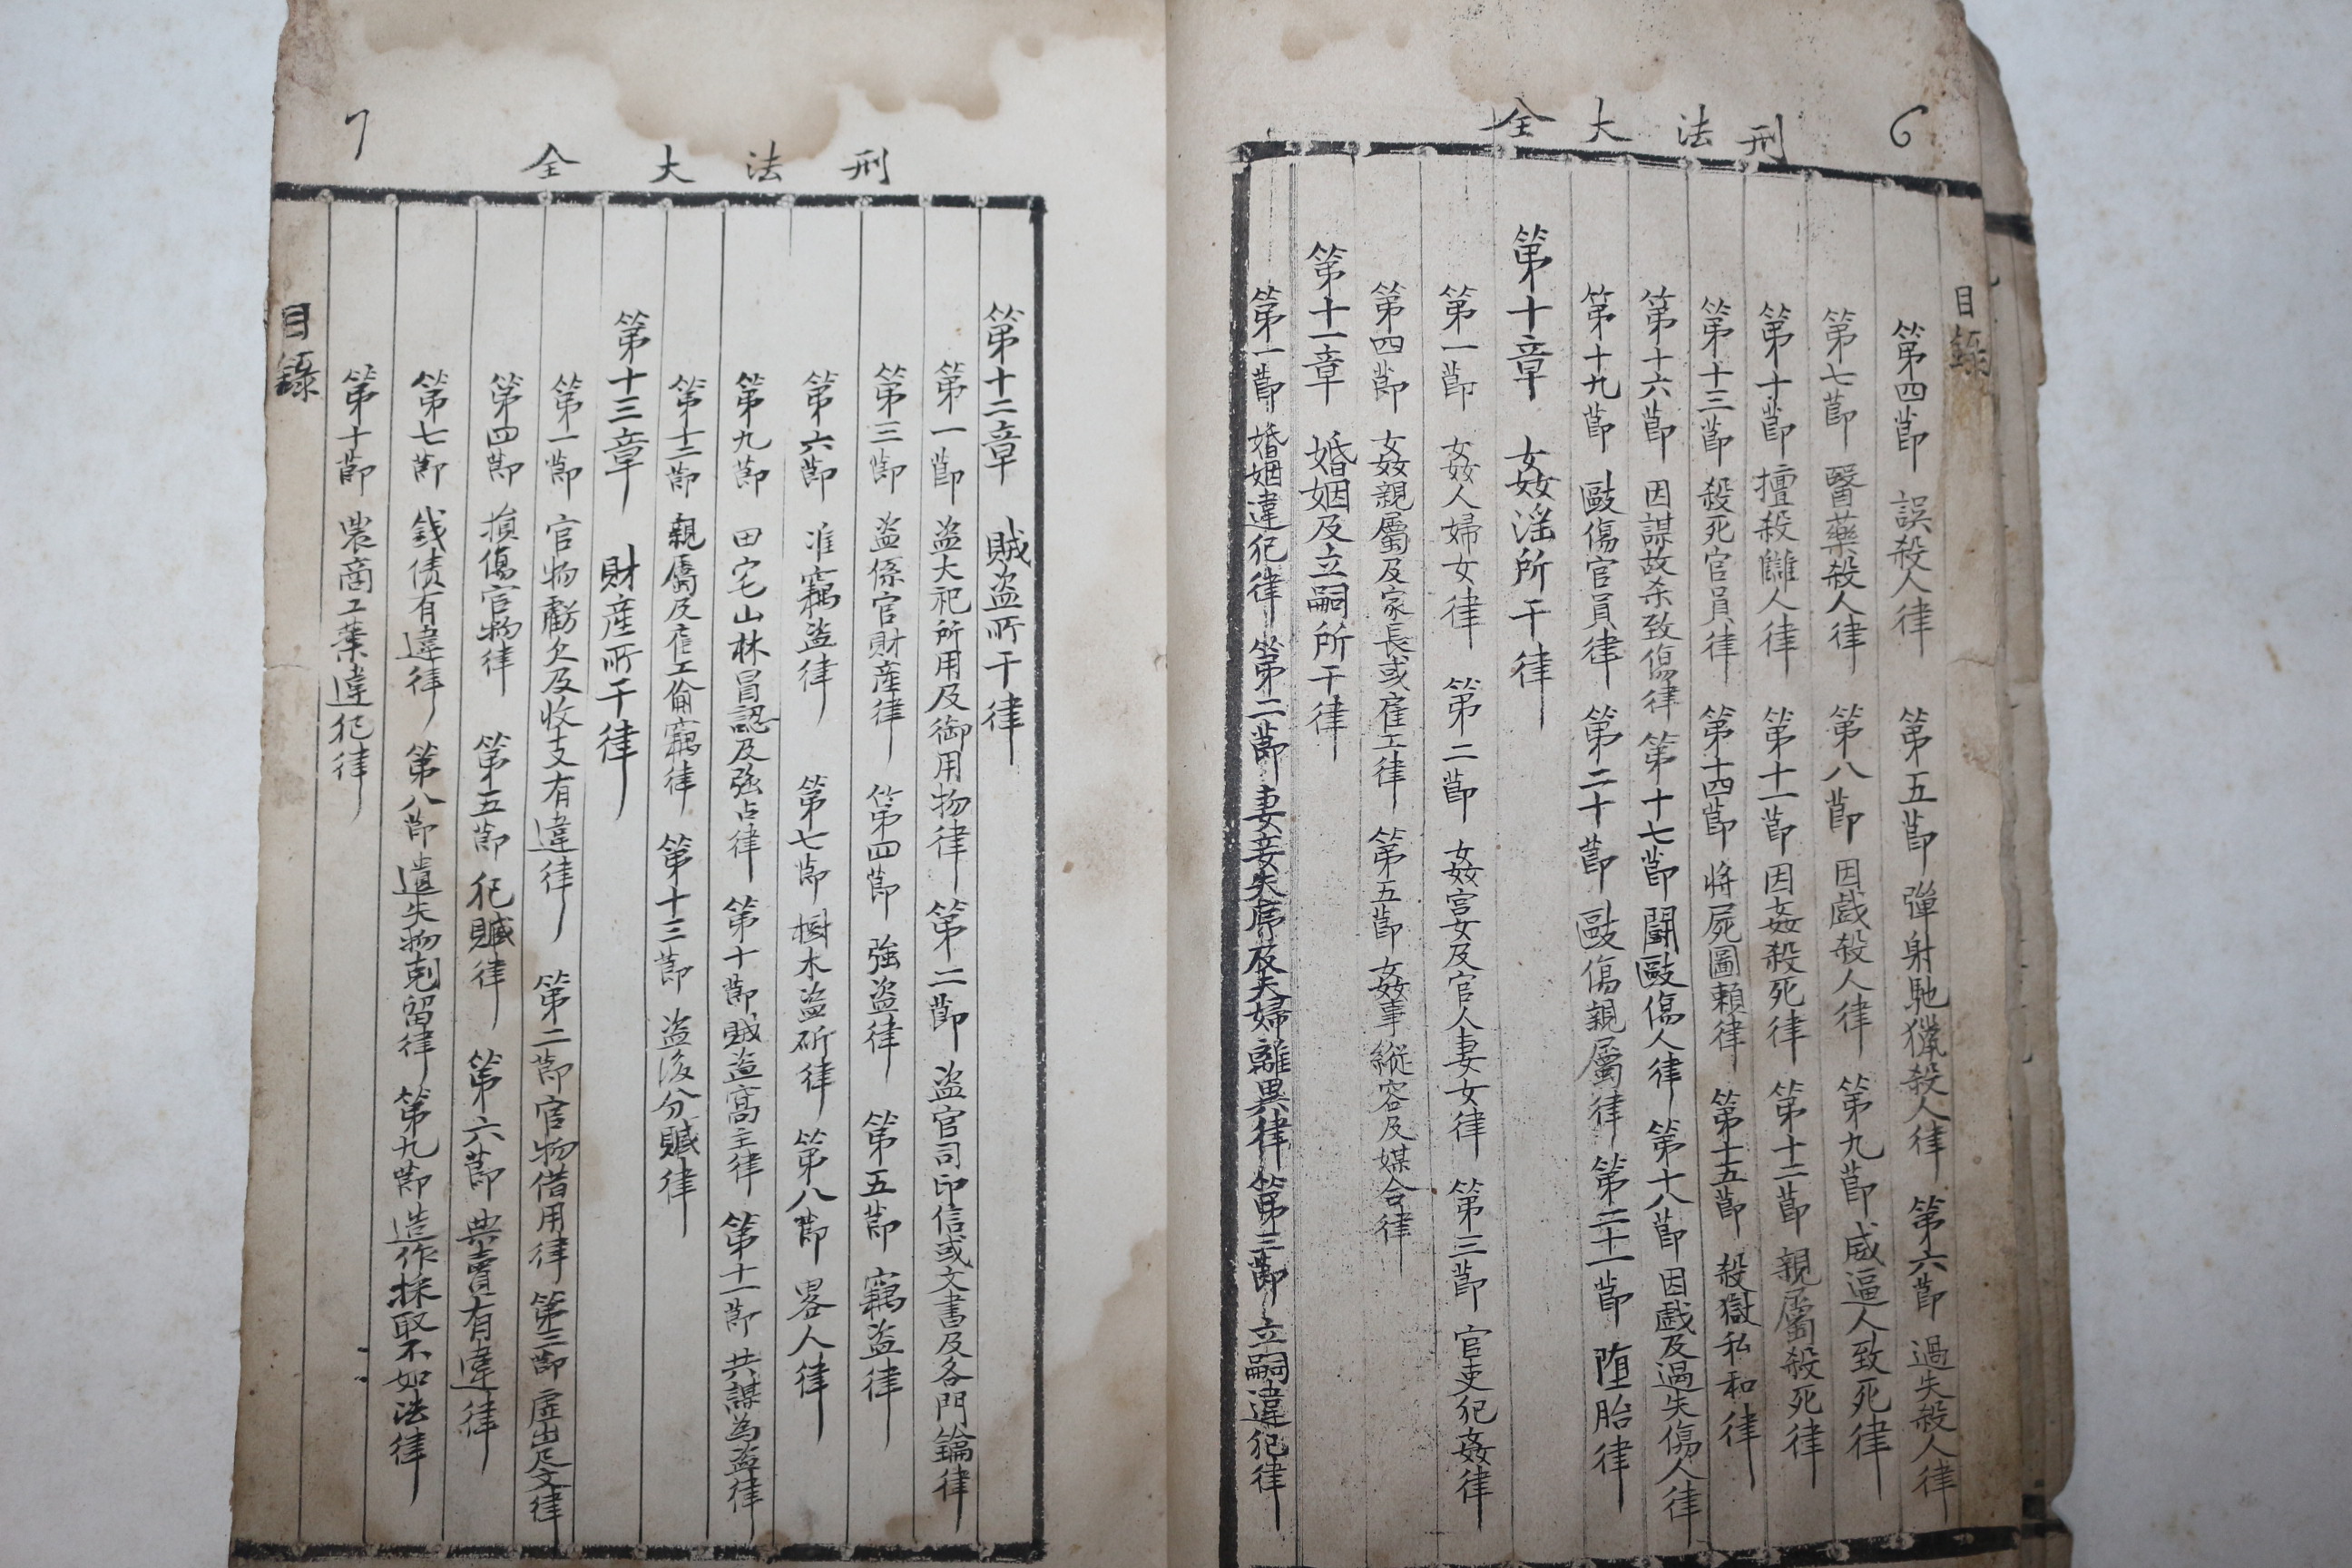 6
刑法大全
目錄
第四節 誤殺人律 第五節 彈射馳獵殺人律 第六節 過失殺人律
第七節 醫藥殺人律 第八節 因戲殺人律 第九節 威逼人致死律
第十節 擅殺讎人律 第十一節 因姦殺死律 第十二節 親屬殺死律
第十三節 殺死官員律 第十四節 將屍圖賴律 第十五節 殺獄私和律
第十六節 因謀故杀致傷律 第十七節 鬪敺傷人律 第十八節 因戲及過失傷人律
第十九節 敺傷官員律 第二十節 敺傷親屬律 第二十一節 堕胎律
第十章 姦淫所干律
第一節 姦人婦女律 第二節 姦宮女及官人妻女律 第三節 官吏犯姦律
第四節 姦親屬及家長或雇工律 第五節 姦事縱容及媒合律
第十一章 婚姻及立嗣所干律
第一節 婚姻違犯律 第二節 妻妾失序及夫婦離異律 第三節 立嗣違犯律
7
刑法大全
第十二章 賊盜所干律
第一節 盜大祀所用及御用物律 第二節 盜官司印信或文書及各門鑰律
第三節 盜係官財産律 第四節 強盜律 第五節 竊盜律
第六節 准竊盜律 第七節 樹木盜斫律 第八節 畧人律
第九節 田宅山林冒認及強占律 第十節 賊盜窩主律 第十一節 共謀為盜律
第十二節 親屬及雇工偷竊律 第十三節 盜後分贓律
第十三章 財産所干律
第一節 官物虧欠及收支有違律 第二節 官物借用律 第三節 虛出尺文律
第四節 損傷官物律 第五節 犯贓律 第六節 典賣有違律
第七節 銭债有違律 第八節 遺失物剋留律 第九節 造作採取不如法律
第十節 農商工業違犯律
目錄